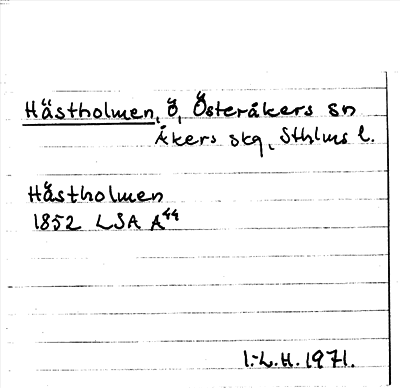 Hästholmen, ö, Österåkers sn
Åkers skg, Sthlms l.
Hästholmen
1852 LSA A44
I.-L.H. 1971.